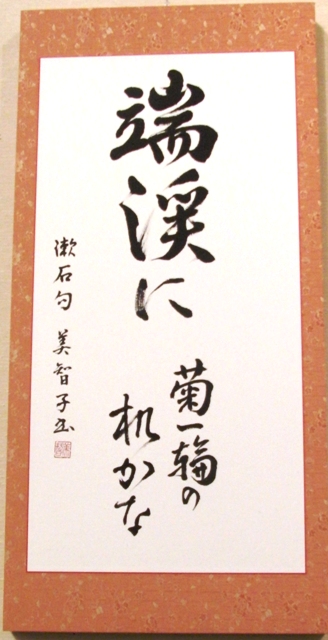 端渓に
菊一輪の
机かな
漱石句 美智子書